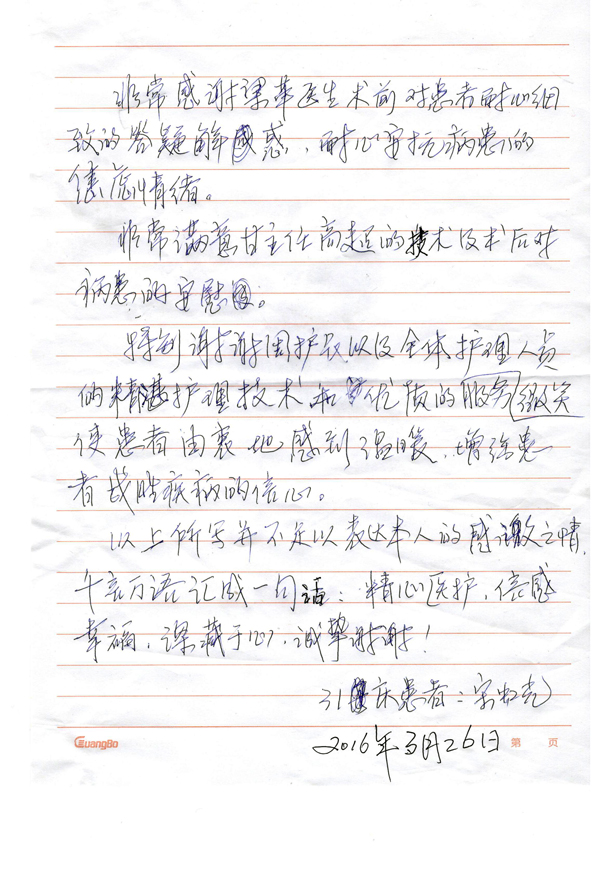 非常感谢梁华医生术前对患者耐心细
致的答疑解惑、耐心安抚病患的
焦虑情绪。
非常满意甘主任高超的技术及术后对
病患的安慰。
特别谢谢周护长以及全体护理人员
的精湛护理技术和优质的服务微笑
使患者由衷地感到温暖、增强患
者战胜疾病的信心。
以上所写并不足以表达本人的感激之情,
千言万语汇成一句话:精心医护,倍感
幸福,深藏于心,诚挚谢谢!
31床患者:宋
2016年3月26日
GuangBo 第 页